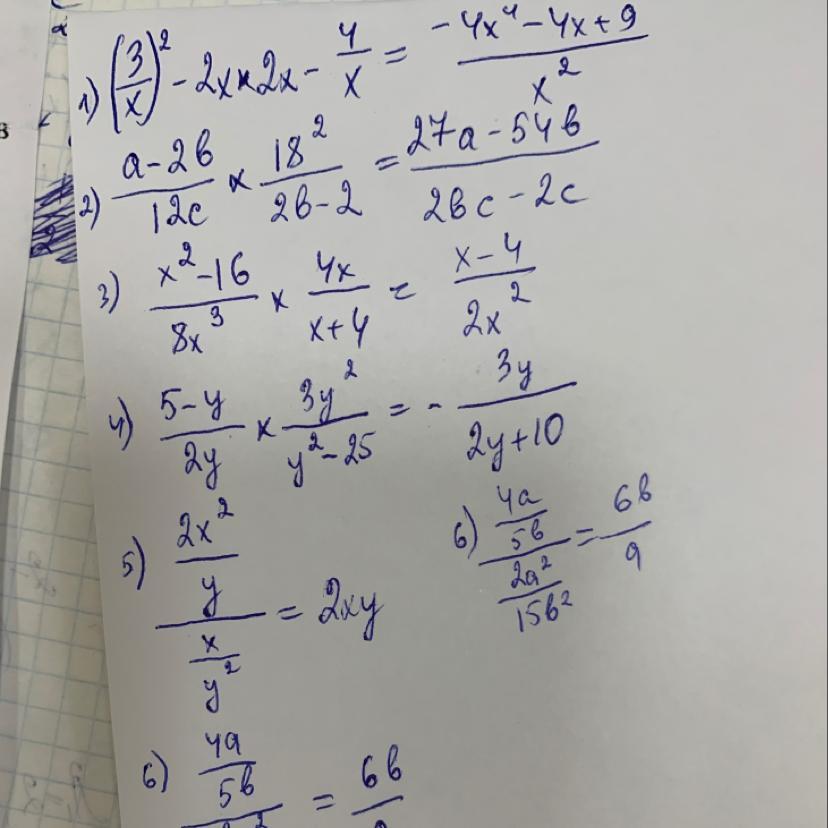 1) (3/x)² - 2x × 2x - 4/x = (-4x⁴ - 4x + 9)/x²
2) (a - 2b)/12c × 18²/(2b - 2) = (27a - 54b)/(2bc - 2c)
3) (x² - 16)/8x³ × 4x/(x + 4) = (x - 4)/2x²
4) (5 - y)/2y × 3y²/(y² - 25) = - 3y/(2y + 10)
5) (2x²/y)/(x/y²) = 2xy
6) (4a/5b)/(2a²/15b²) = 6b/a
6) 4a/5b = 6b